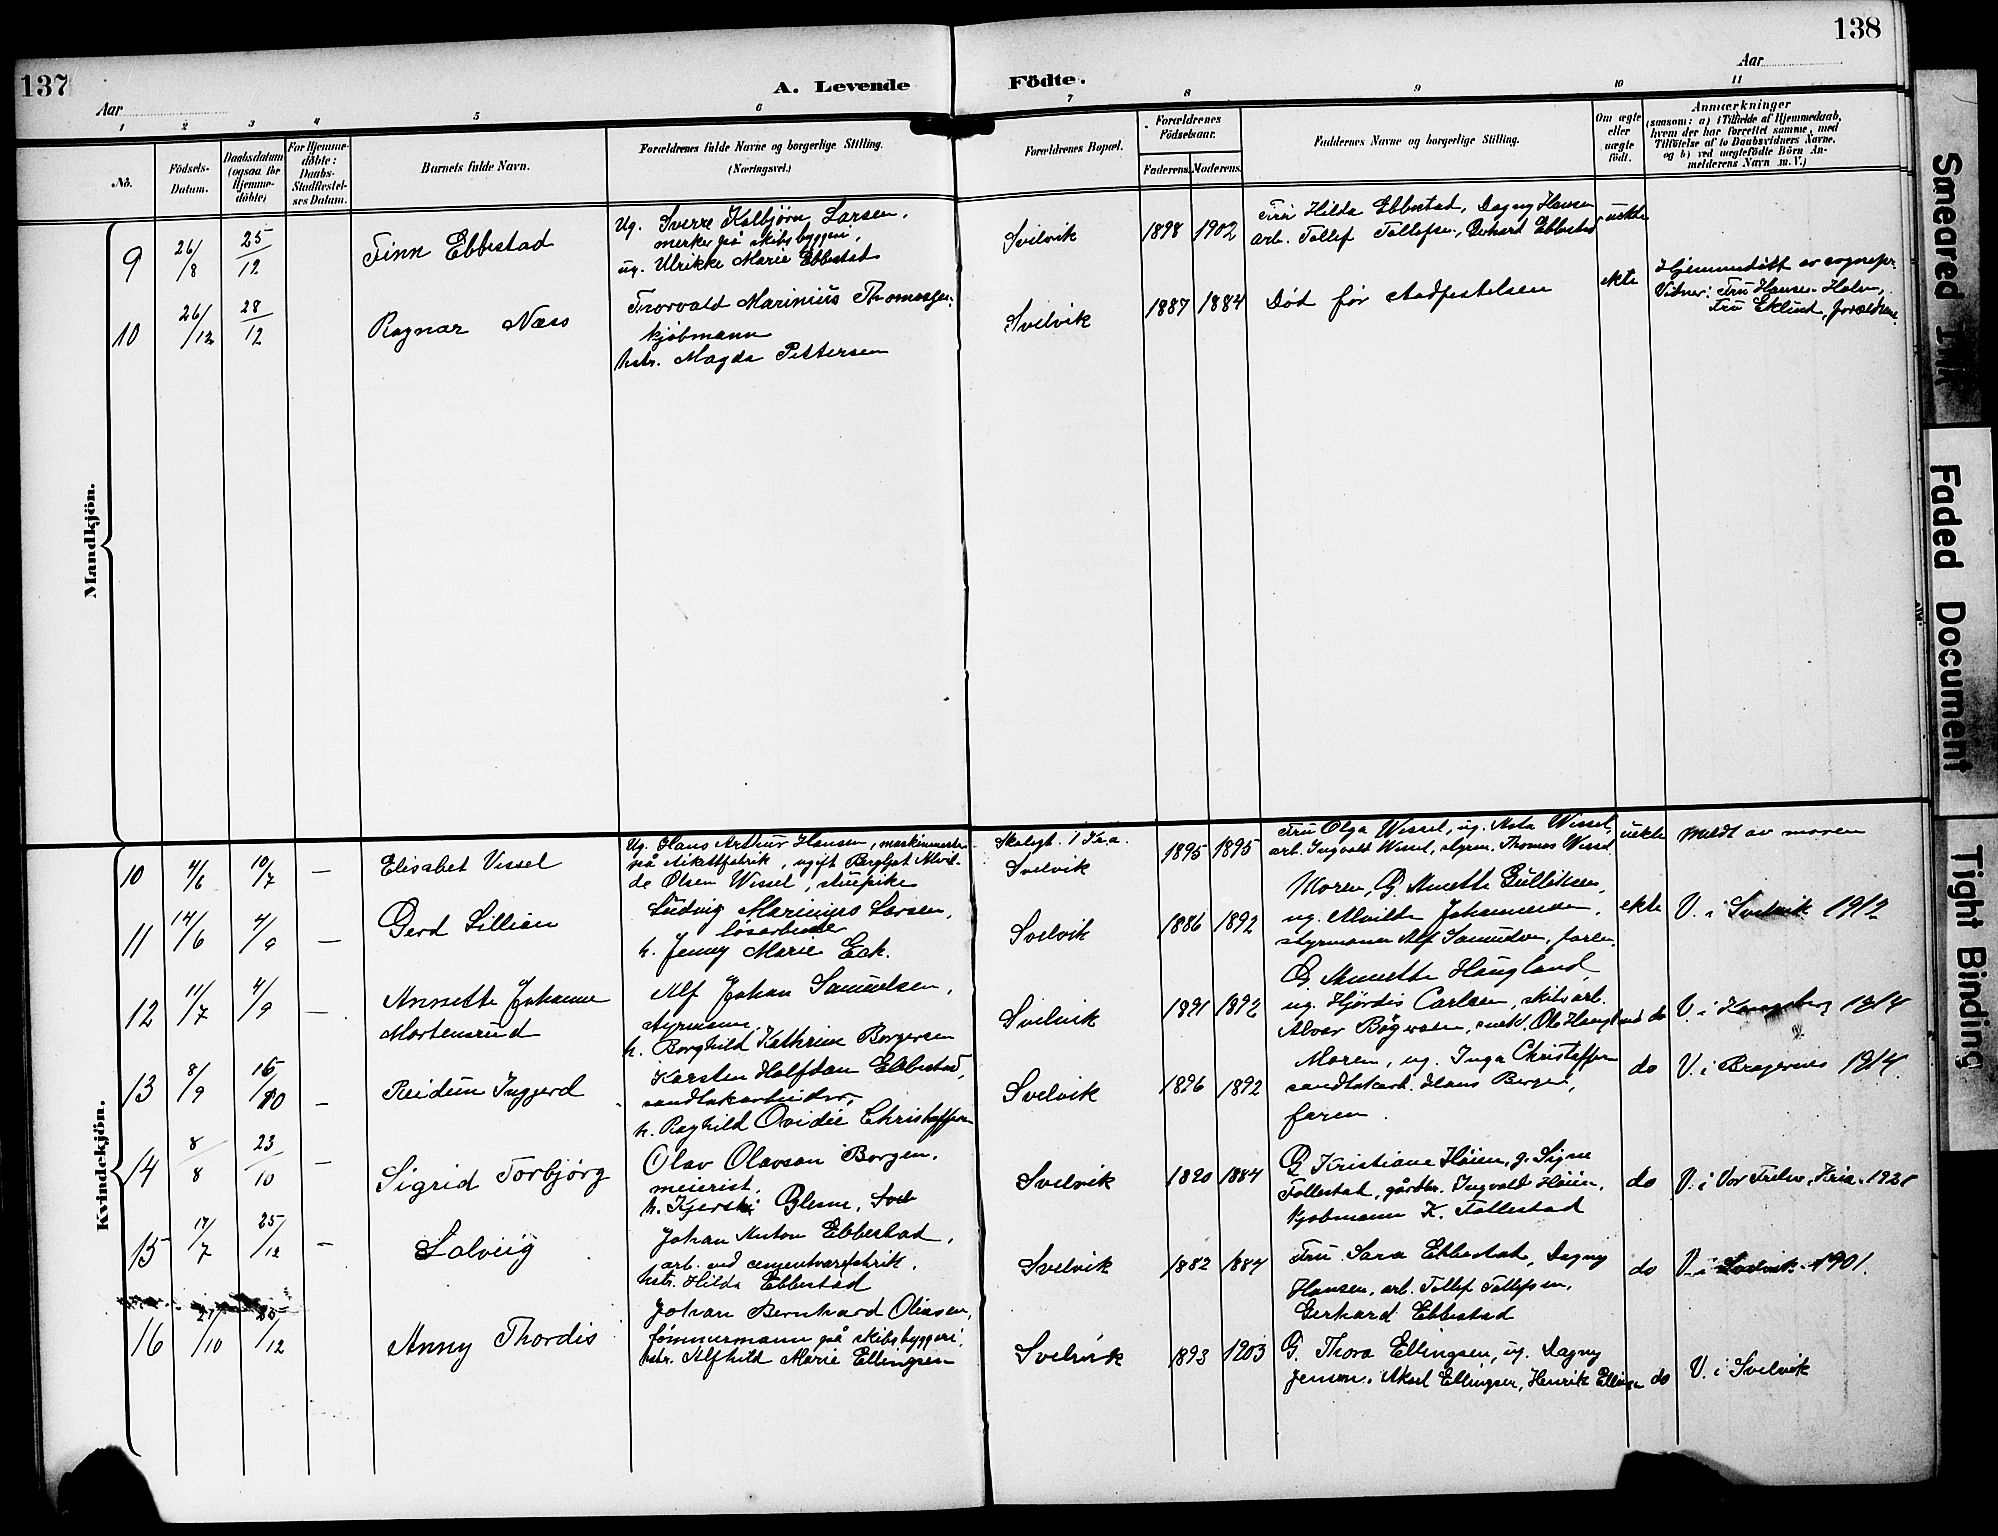 137
138
A. Levende Födte.
Aar
Aar
1 2 3 4 5 6 7 8 9 10 11
No.
Födsels-Datum.
Daabsdatum (ogsaa for Hjemmedöbte)
For Hjemmedöbte: Daabs-Stadfæstelses Datum.
Barnets fulde Navn.
Forældrenes fulde Navne og borgerlige Stilling.
(Næringsvei.)
Forældrenes Bopæl.
Forældrenes Födselsaar.
Faderens. Moderens.
Faddernes Navne og borgerlige Stilling.
Om ægte eller uægte födt.
Anmærkninger
(saasom: a) i Tilfælde af Hjemmedaab, hvem der har forrettet samme, med Tilföielse af to Daabsvidners Navne, og b) ved uegtefödte Börn Anmelderens Navn m. V.)
Mandkjön.
9 26/8 25/12 Finn Ebbestad
Ug. Sverre Kolbjørn Larsen,
merker på skibsbyggeri,
ug. Ulrikke Marie Ebbestad
Svelvik 1898 1902
Fru Hilda Ebbestad, Dagny Hansen
arb. Tollef Tollefsen, Gerhard Ebbestad
uekte
10 26/12 28/12 Ragnar Næss
Thorvald Marinius Thomassen
kjøbmann
hstr. Magda Pettersen
Svelvik 1887 1884
Død før stadfestelsen
ekte
Hjemmedøpt av sognepr.
Vitner: Fru Hansen-Holm,
Fru Eklund, forældrene.
Kvindekjön.
10 4/6 10/7 — Elisabet Vissel
Ug. Hans Arthur Hansen, maskinmester
på stikattfabrik, ugift Bergljot Alvil-
de Olsen Wissel, stuepike
Svelvik 1895 1895
Fru Olga Wissel, ug. Asta Wissel,
arb. Ingvald Wissel, styrm. Thomas Wissel
uekte
Meldt av moren
11 14/6 4/9 — Gerd Lillian
Ludvig Marinius Larsen,
løsarbeider
h. Jenny Marie Eck.
Svelvik 1886 1892
Moren, G. Annette Gulliksen,
ug. Alvilde Johannessen,
styrmann Alf Samuelsen, faren.
ekte
V. i Svelvik 1912
12 11/7 4/9 — Annette Johanne
Mortensrud
Alf Johan Samuelsen,
styrmann,
h. Borghild Kathrine Borgersen
Svelvik 1891 1892
G. Annette Haugland,
ug. Hjørdis Carlsen, skibsarb.
Alvar Bøgersen, Ole Haugland
do
V. i 1914
13 8/9 16/10 — Reidun Ingjerd
Karsten Halfdan Ebbestad,
sandtakarbeider,
h. Raghild Ovidie Christoffersen
Svelvik 1896 1892
Moren, ug. Inga Christoffersen
sandtakarb. Hans Berger,
faren.
do
V. i Bragernes 1914
14 8/8 23/10 — Sigrid Torbjørg
Olav Olavson Borgen,
meierist,
h. Kjersti Glesne,
Svelvik 1890 1884
G. Kristiane Høien, g. Signe
Follestad, gårdbr. Ingvald Høien,
kjøbmann K. Follestad
do
V. i Vor Frelser, Kria.
15 17/7 25/12 — Solveig
Johan Anton Ebbestad,
arb. ved cementvarefabrik,
hstr. Hilda Ebbestad
Svelvik 1882 1884
Fru Sara Ebbestad, Dagny
Hansen, arb. Tollef Tollefsen,
Gerhard Ebbestad
do
V. i Svelvik 1901.
16 27/10 25/12 Anny Thordis
Johan Bernhard Oliasen,
tømmermann på skibsbyggeri
hstr. Alfhild Marie Ellingsen
Svelvik 1893 1903
G. Thora Ellingsen, ug. Dagny
Jensen, Aksel Ellingsen, Henrik Ellingsen
do
V. i Svelvik
Smeared Ink
Faded Document
Tight Binding